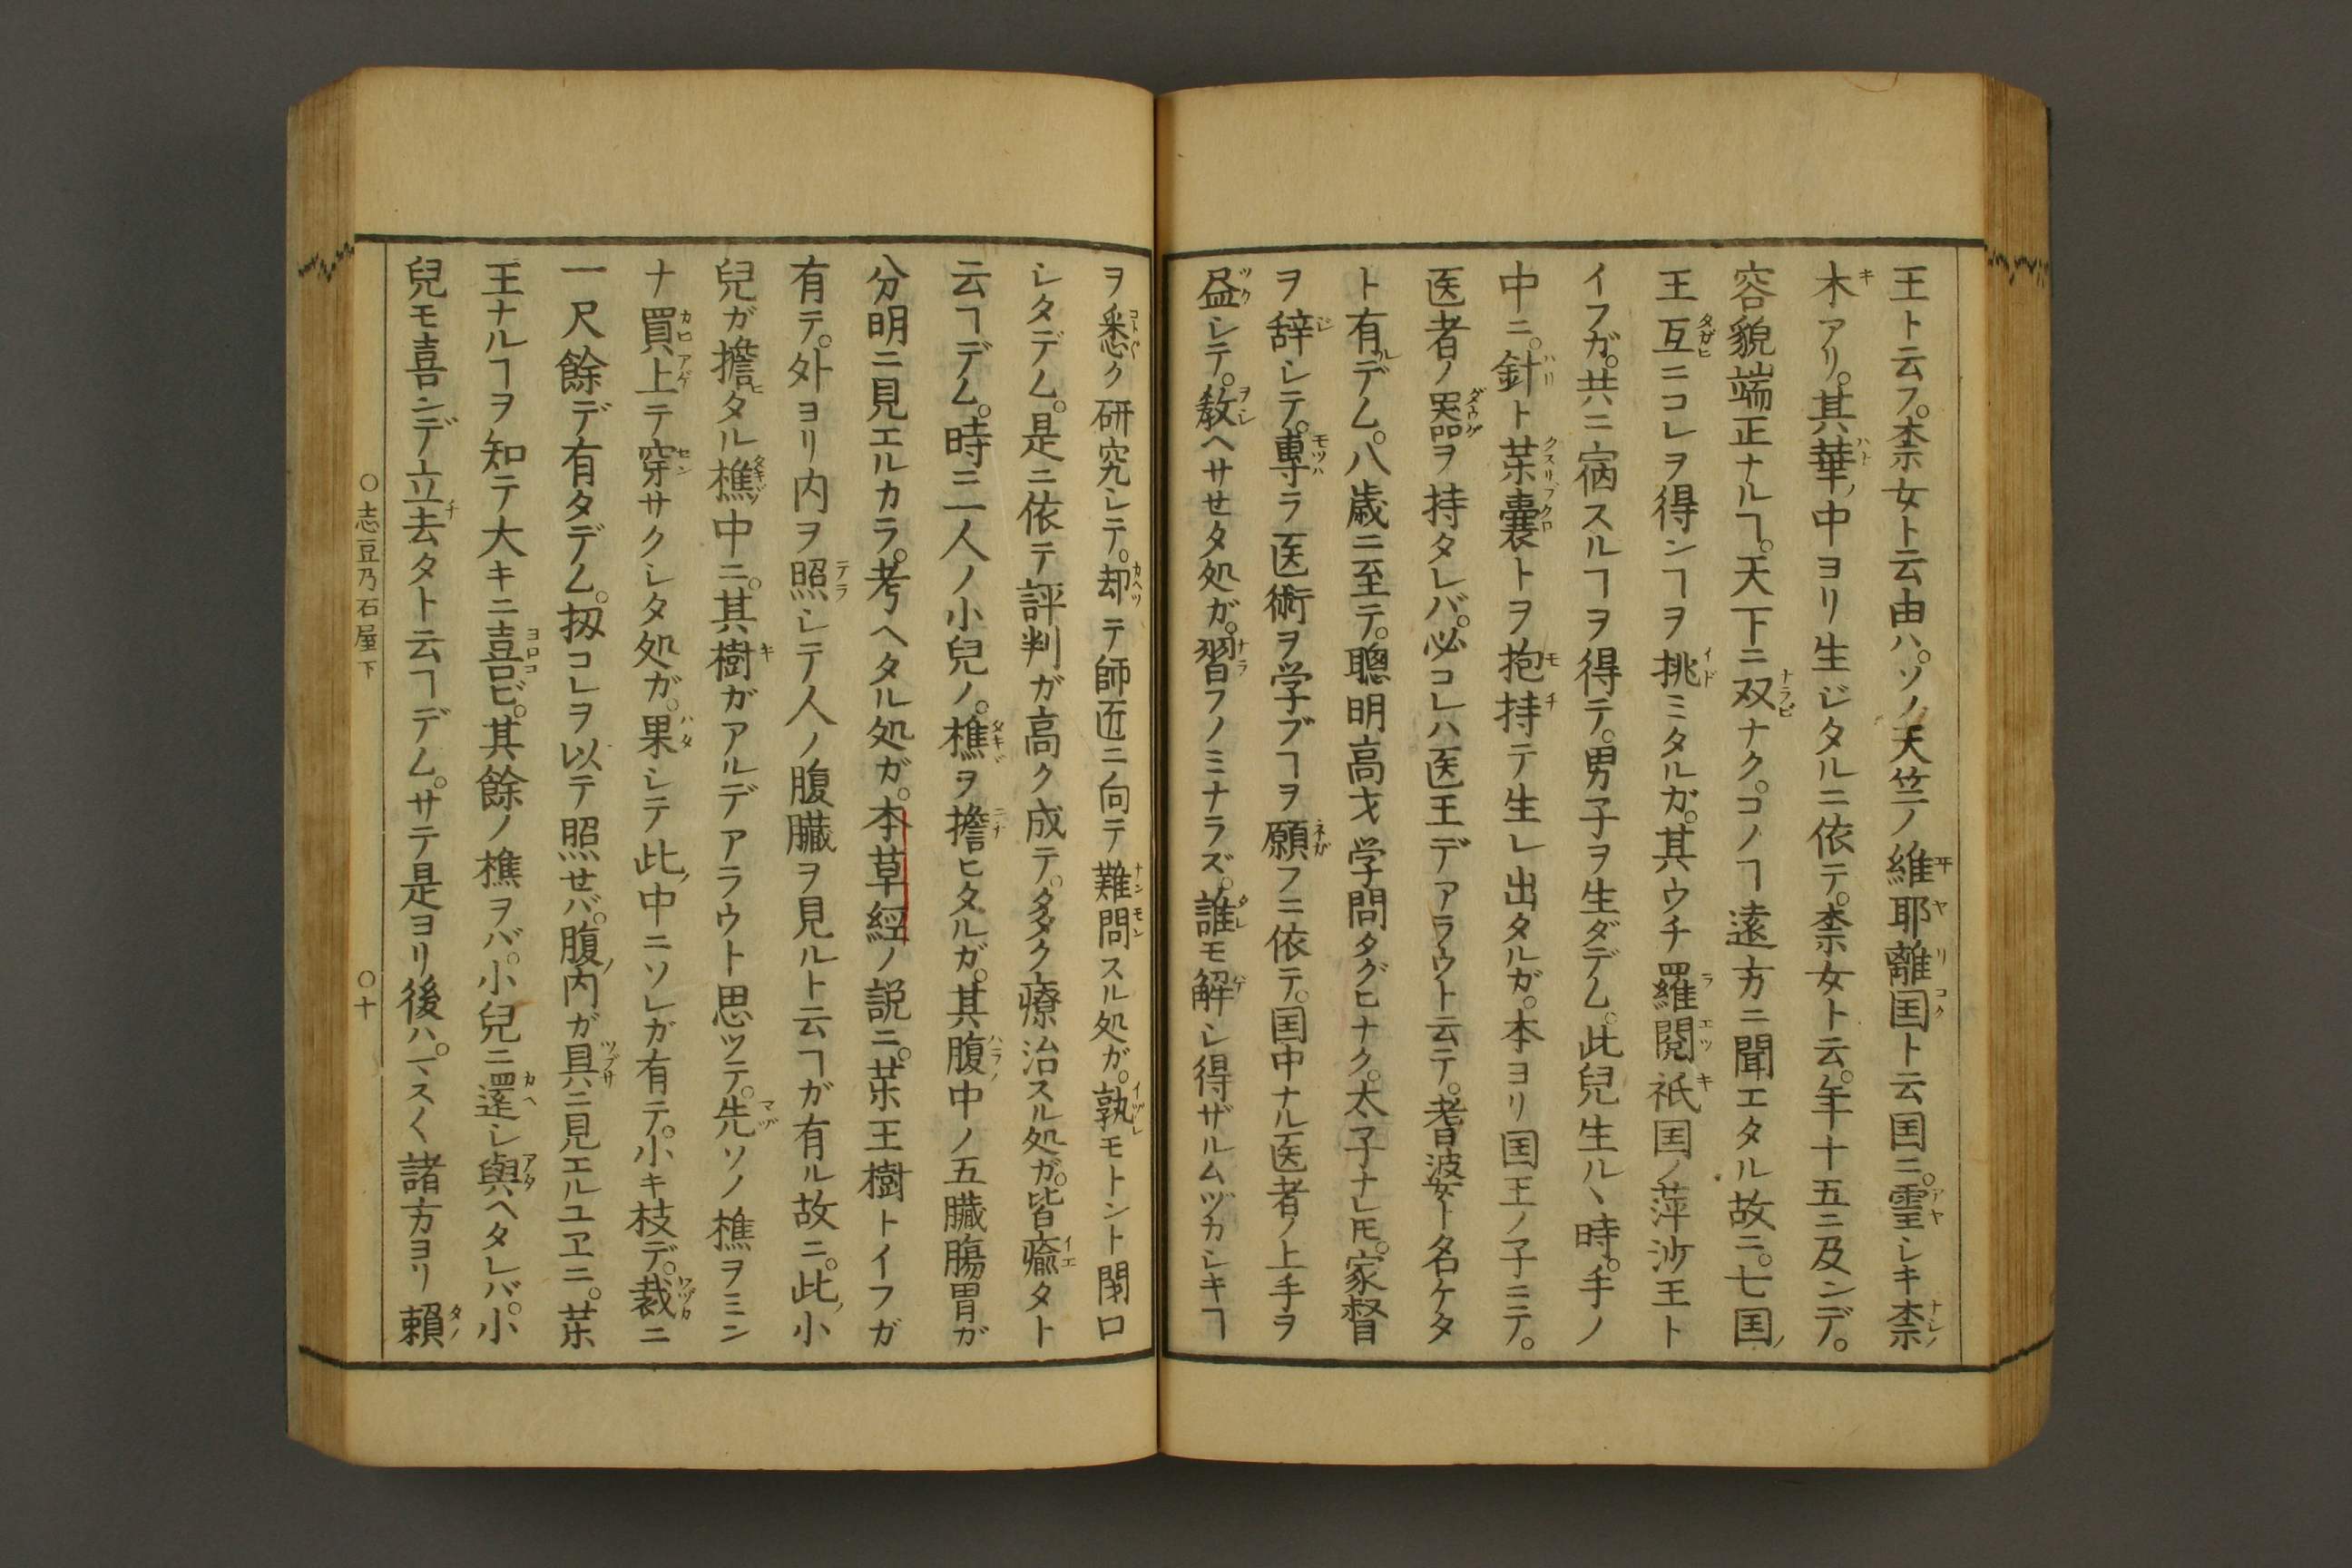 王ト云フ。柰女ト云由ハ。ソノ天竺ノ維耶離国ト云国ニ。霊シキ柰
木アリ。其華ノ中ヨリ生ジタルニ依テ。柰女ト云。年十五ニ及ンデ。
容貌端正ナルヿ。天下ニ双ナク。コノヿ遠方ニ聞エタル故ニ。七国ノ
王互ニコレヲ得ンヿヲ挑ミタルガ。其ウチ羅閲祇国ノ萍沙王ト
イフガ。共ニ宿スルヿヲ得テ。男子ヲ生ダデム。此兒生ルヽ時。手ノ
中ニ。針ト薬嚢トヲ抱持テ生レ出タルガ。本ヨリ国王ノ子ニテ。
医者ノ器ヲ持タレバ。必コレハ医王デアラウト云テ。耆婆ト名ケタ
ト有ルデム。八歳ニ至テ。聰明高才学問タグヒナク。太子ナレ𪜈。家督
ヲ辞シテ。專ラ医術ヲ学ブヿヲ願フニ依テ。国中ナル医者ノ上手ヲ
盡シテ。教ヘサセタ処ガ。習フノミナラズ。誰モ解シ得ザルムヅカシキヿ
ヲ悉ク研究シテ。却テ師匠ニ向テ難問スル処ガ。孰モトント閉口
シタデム。是ニ依テ評判ガ高ク成テ。多ク療治スル処ガ。皆癒タト
云ヿデム。時ニ一人ノ小兒ノ。樵ヲ擔ヒタルガ。其腹中ノ五臟膓胃ガ
分明ニ見エルカラ。考ヘタル処ガ。本草經ノ説ニ。薬王樹トイフガ
有テ。外ヨリ内ヲ照シテ人ノ腹臟ヲ見ルト云ヿガ有ル故ニ。此ノ小
兒ガ擔ヒタル樵ノ中ニ。其樹ガアルデアラウト思ツテ。先ソノ樵ヲミン
ナ買上テ穿サクシタ処ガ。果シテ此ノ中ニソレガ有テ。小キ枝デ。裁ニ
一尺餘デ有タデム。扨コレヲ以テ照セバ。腹ノ内ガ具ニ見エルユヱニ。薬
王ナルヿヲ知テ大キニ喜ビ。其餘ノ樵ヲバ。小兒ニ還シ與ヘタレバ。小
兒モ喜ンデ立去タト云ヿデム。サテ是ヨリ後ハ。マス〱諸方ヨリ賴
○志豆乃石屋下 ○十